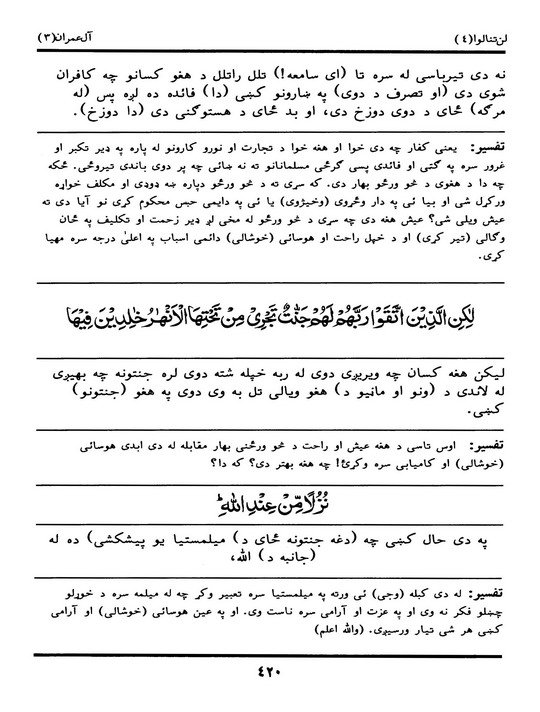 لن تنالوا (٤)
آل عمران (٣)
نه دی تیرباسی له سره تا (ای سامعه!) تلل راتلل د هغو کسانو چه کافران
شوی دی (او تصرف د دوی) په ښارونو کښی (دا) فائده ده لږه پس (له
مرگه) ځای د دوی دوزخ دی، او بد ځای د هستوگنی دی (دا دوزخ).
تفسیر: یعنی کفار چه دی خوا او هغه خوا د تجارت او نورو کارونو له پاره په ډیر تکبر او
غرور سره په گټی او فائدی پسی گرځی مسلمانانو ته نه ښائی چه پر دوی باندی تیروځی. ځکه
چه دا د هغوی د څو ورځو بهار دی. که سړی ته د څو ورځو دپاره ښه ډوډی او مکلف خواړه
ورکړل شی او بیا ئی په دار وځړوی (وخیژوی) یا ئی په دایمی حبس محکوم کړی نو آیا دی ته
عیش ویلی شی؟ عیش هغه دی چه سړی د څو ورځو له مخی لږ ډیر زحمت او تکلیف په ځان
وگالی (تیر کړی) او د خپل راحت او هوسائی (خوشالی) دائمی اسباب په اعلیٰ درجه سره مهیا
کړی.
لٰكِنِ الَّذِيْنَ اتَّقَوْا رَبَّهُمْ لَهُمْ جَنّٰتٌ تَجْرِيْ مِنْ تَحْتِهَا الْاَنْهٰرُ خٰلِدِيْنَ فِيْهَا
لیکن هغه کسان چه ویریږی دوی له ربه خپله شته دوی لره جنتونه چه بهیږی
له لاندی د (ونو او ماڼیو د) هغو ویالی تل به وی دوی په هغو (جنتونو)
کښی.
تفسیر: اوس تاسی د هغه عیش او راحت د څو ورځنی بهار مقابله له دی ابدی هوسائی
(خوشالی) او کامیابی سره وکړئ! چه هغه بهتر دی؟ که دا؟
نُزُلًا مِّنْ عِنْدِ اللّٰهِ ؕ
په دی حال کښی چه (دغه جنتونه ځای د) میلمستیا یو پیشکشی) ده له
(جانبه د) الله،
تفسیر: له دی کبله (وجی) ئی ورته په میلمستیا سره تعبیر وکړ چه له میلمه سره د خوړلو
چښلو فکر نه وی او په عزت او آرامی سره ناست وی. او په عین هوسائی (خوشالی) او آرامی
کښی هر شی تیار ورسیږی. (والله اعلم)
٤٢٠